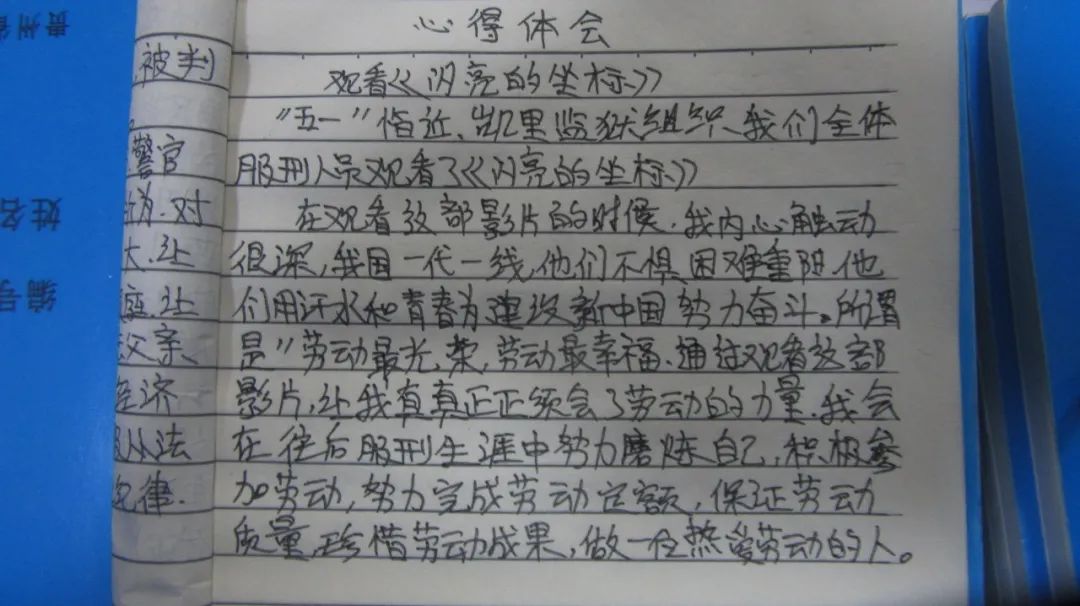 心得体会
观看《闪亮的坐标》
"五一"临近、凯里监狱组织、我们全体
服刑人员观看了《闪亮的坐标》
在观看这部影片的时候.我内心触动
很深,我国一代一线,他们不惧困难重阻.他
们用汗水和青春为建设新中国努力奋斗。所谓
是"劳动最光荣,劳动最幸福.通过观看这部
影片,让我真真正正领会了劳动的力量.我会
在往后服刑生涯中努力磨炼自己,积极参
加劳动,努力完成劳动定额,保证劳动
质量.珍惜劳动成果,做一位热爱劳动的人。
被判
警官
为.对
大.让
让
父亲、
经济
从法
律.
贵州省
姓名
编号